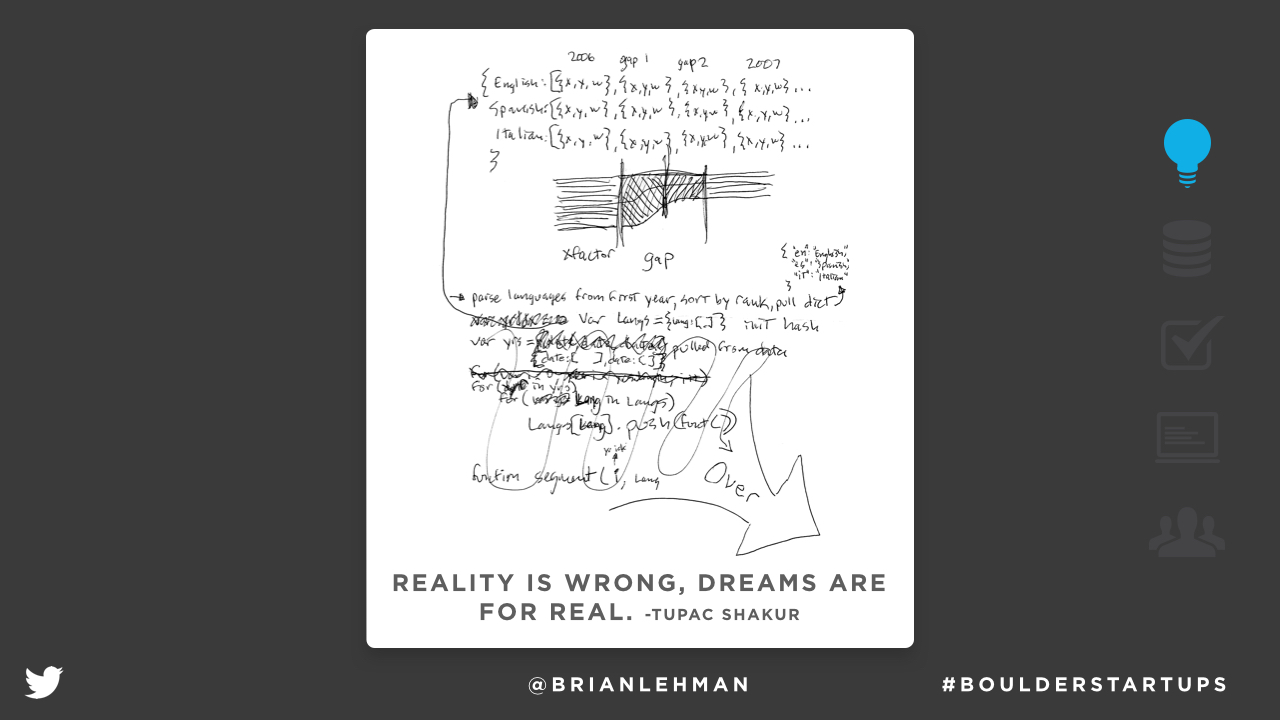 2006 gap 1 gap 2 2007
{ English: [{x,y,w}, {x,y,w}, {x,y,w}, {x,y,w} ...
Spanish: [{x,y,w}, {x,y,w}, {x,y,w}, {x,y,w} ...
Italian: [{x,y,w}, {x,y,w}, {x,y,w}, {x,y,w} ...
}
xfactor gap
{ "en": "English",
"es": "Spanish",
"it": "Italian"
}
parse languages from first year, sort by rank, pull dict
var langs = {lang:[,]} init hash
var yrs = pulled from data
[{date:[ ], date:[]}]
for ( in yrs)
for ( lang in langs)
langs[lang].push(funct())
function segment (i, lang
Over
REALITY IS WRONG, DREAMS ARE
FOR REAL. -TUPAC SHAKUR
@BRIANLEHMAN #BOULDERSTARTUPS